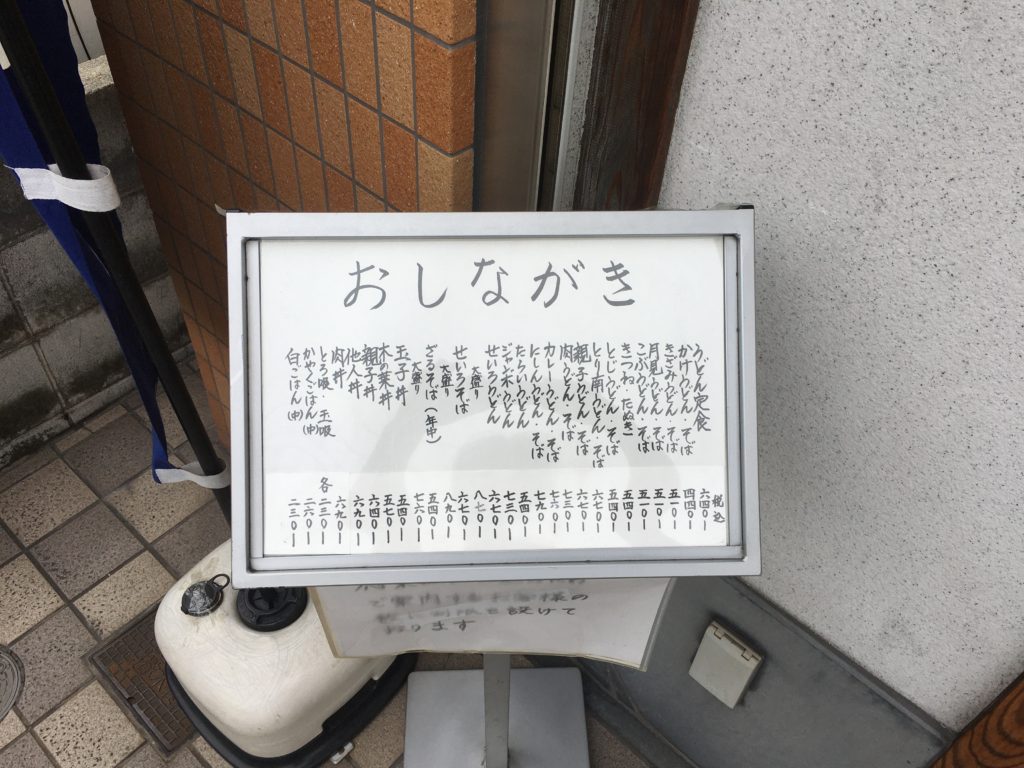 おしながき
税込
うどん定食 六四〇ー
かけうどん・そば 四四〇ー
きざみうどん・そば 五一〇ー
月見うどん・そば 五一〇ー
こぶうどん・そば 五一〇ー
きつね たぬき 五四〇ー
とじうどん・そば 五四〇ー
とり南うどん・そば 六七〇ー
親子うどん・そば 六七〇ー
肉うどん・そば 七三〇ー
カレーうどん・そば 七六〇ー
にしんうどん・そば 七九〇ー
たらいうどん 五四〇ー
ジャンボうどん 七三〇ー
せいろうどん 六七〇ー
大盛り 八七〇ー
せいろそば 六七〇ー
大盛り 八九〇ー
ざるそば(年中) 五四〇ー
大盛り 七六〇ー
玉子丼 五四〇ー
木の葉丼 五七〇ー
親子丼 六四〇ー
他人丼 六九〇ー
肉丼 六九〇ー
とろ吸・玉吸 各二三〇ー
かやくごはん(中) 二六〇ー
白ごはん(中) 二三〇ー
ご案内するお客様の
設けて
おります